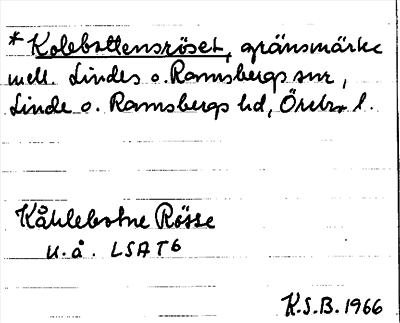 * Kolbottensröset, gränsmärke
mell. Lindes o. Ramsbergs snr,
Linde o. Ramsbergs hd, Örebro l.
Kåhlebotne Rösse
u.å. LSA T6
K.S.B. 1966